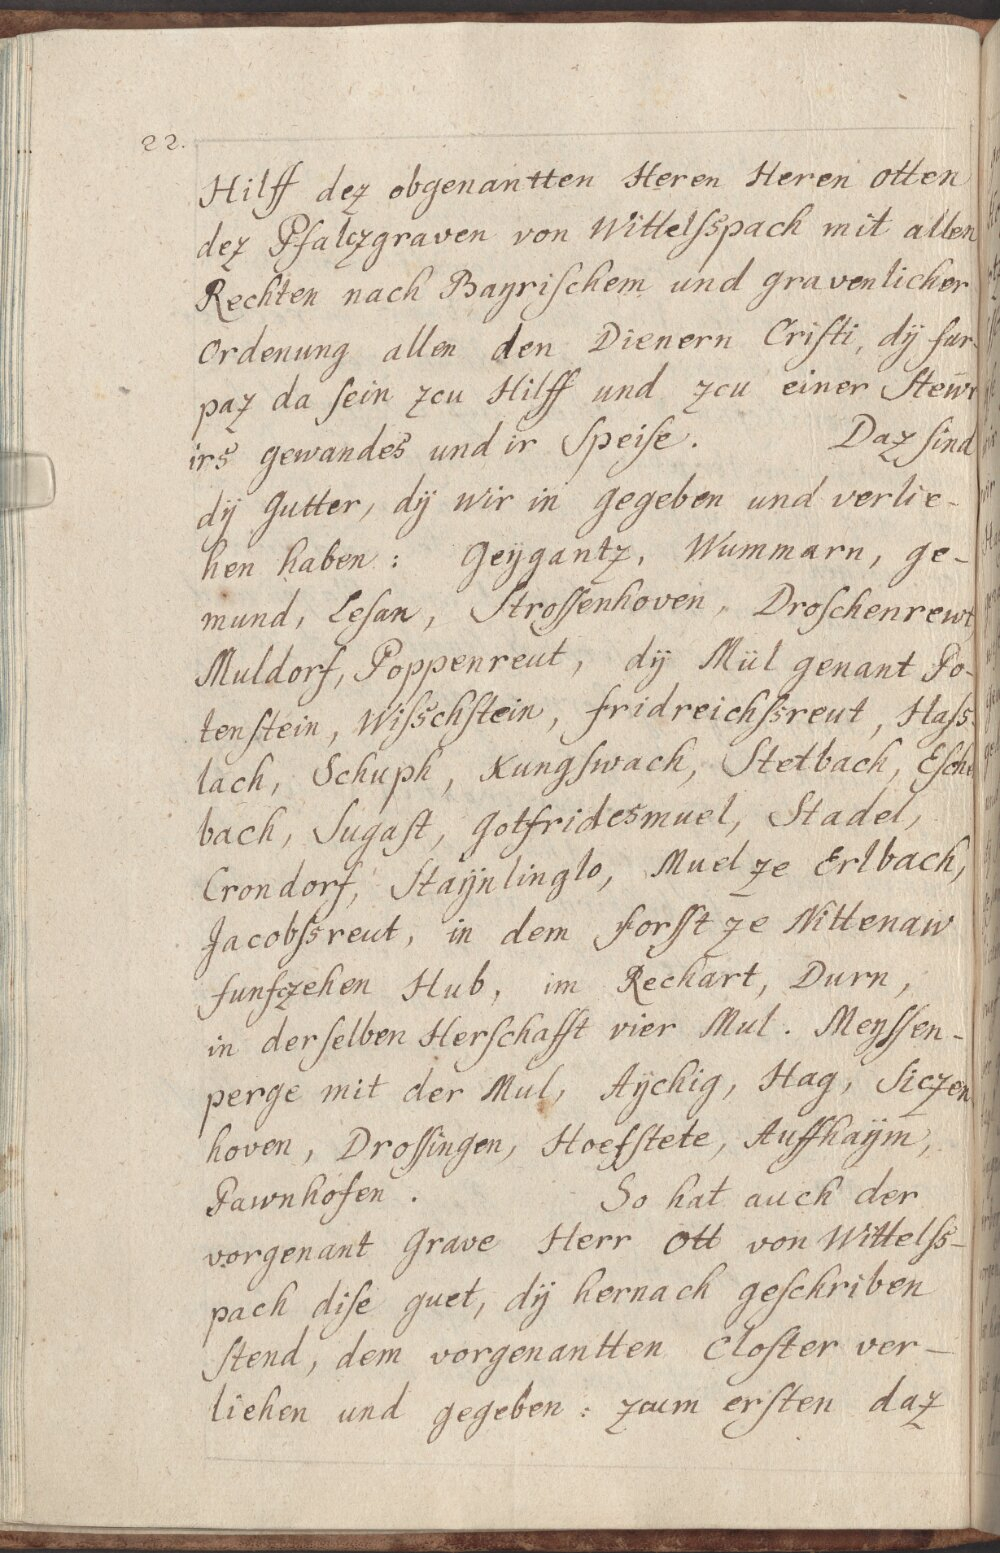 22.
Hilff dez obgenantten Heren Heren otten
dez Pfalczgraven von Wittelsspach mit allen
Rechten nach Bayrischem und gravenlicher
Ordenung allen den Dienern Cristi, dÿ fur-
paz da sein zcu Hilff und zcu einer Stewr
irs gewandes und ir Speise. Daz sind
dÿ Gutter, dÿ wir in gegeben und verlie-
hen haben: Geÿgantz, Wummarn, ge-
mund, Lesan, Strossenhoven, Droschenrewt
Muldorf, Poppenreut, dÿ Mül genant Po-
tenstein, Wisschstein, fridreichssreut, Hass-
lach, Schuph, Kungswach, Stetbach, Esche
bach, Sugast, Gotfridesmuel, Stadel,
Crondorf, Staÿnlinglo, Muel ze Erlbach,
Jacobssreut, in dem Forsst ze Nittenaw
funfczehen Hub, im Rechart, Durn,
in derselben Herschafft vier Mul. Meyssen-
perge mit der Mul, Aÿchig, Hag, Siczen
hoven, Drossingen, Hoefstete, Auffhaÿm,
Pawnhofen. So hat auch der
vorgenant Grave Herr Ott von Wittelss-
pach dise guet, dÿ hernach geschriben
stend, dem vorgenantten Closter ver-
liehen und gegeben: zcum ersten daz